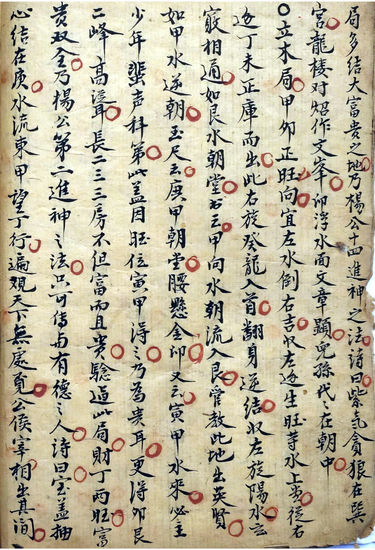 局多结大富贵之地乃楊公十四進神之法詩曰紫氣貪狼在巽
宫龍楼对照作文峯卯浮水面文章顯兒孫代〻在朝中
立木局甲卯正旺向宜左水倒右者收左边生旺等水上堂從右
边丁未正庫而出此右旋癸龍入首翻身逆结收左旋陽水玄
竅相通如艮水朝堂书云甲向水朝流入艮管教此地出英賢
如甲水逆朝玉尺云庚甲朝堂腰懸金印又云寅甲水來必主
少年蜚声科第此盖因旺位寅甲得之乃為貴耳更得卯艮
二峰高浮長二三房不但富而且貴騐過此局財丁兩旺富
貴双全乃楊公第二進神之法只可传与有德之人詩曰宝盖抽
心结在庚水流東甲望丁行遍观天下無處覓公侯宰相出其间